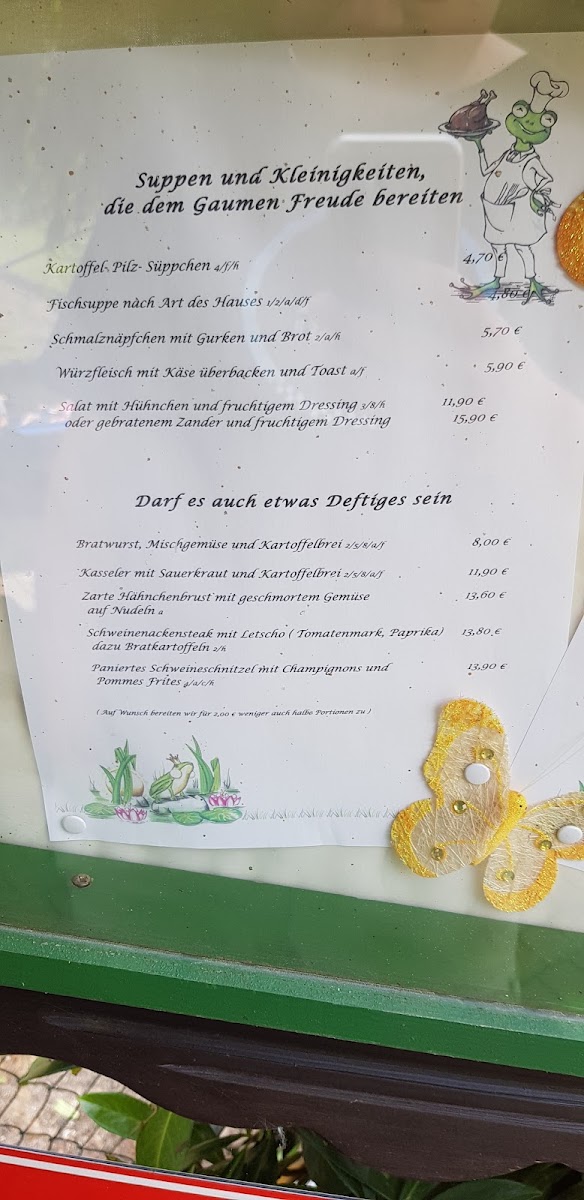 Suppen und Kleinigkeiten,
die dem Gaumen Freude bereiten
Kartoffel- Pilz- Süppchen 4/f/h 4,70 €
Fischsuppe nach Art des Hauses 1/2/a/d/f 4,80 €
Schmalznäpfchen mit Gurken und Brot 2/a/h 5,70 €
Würzfleisch mit Käse überbacken und Toast a/f 5,90 €
Salat mit Hühnchen und fruchtigem Dressing 3/8/h 11,90 €
oder gebratenem Zander und fruchtigem Dressing 15,90 €
Darf es auch etwas Deftiges sein
Bratwurst, Mischgemüse und Kartoffelbrei 2/5/8/a/f 8,00 €
Kasseler mit Sauerkraut und Kartoffelbrei 2/5/8/a/f 11,90 €
Zarte Hähnchenbrust mit geschmortem Gemüse 13,60 €
auf Nudeln a
Schweinenackensteak mit Letscho ( Tomatenmark, Paprika) 13,80 €
dazu Bratkartoffeln 2/h
Paniertes Schweineschnitzel mit Champignons und 13,90 €
Pommes Frites 4/a/c/h
( Auf Wunsch bereiten wir für 2,00 € weniger auch halbe Portionen zu )